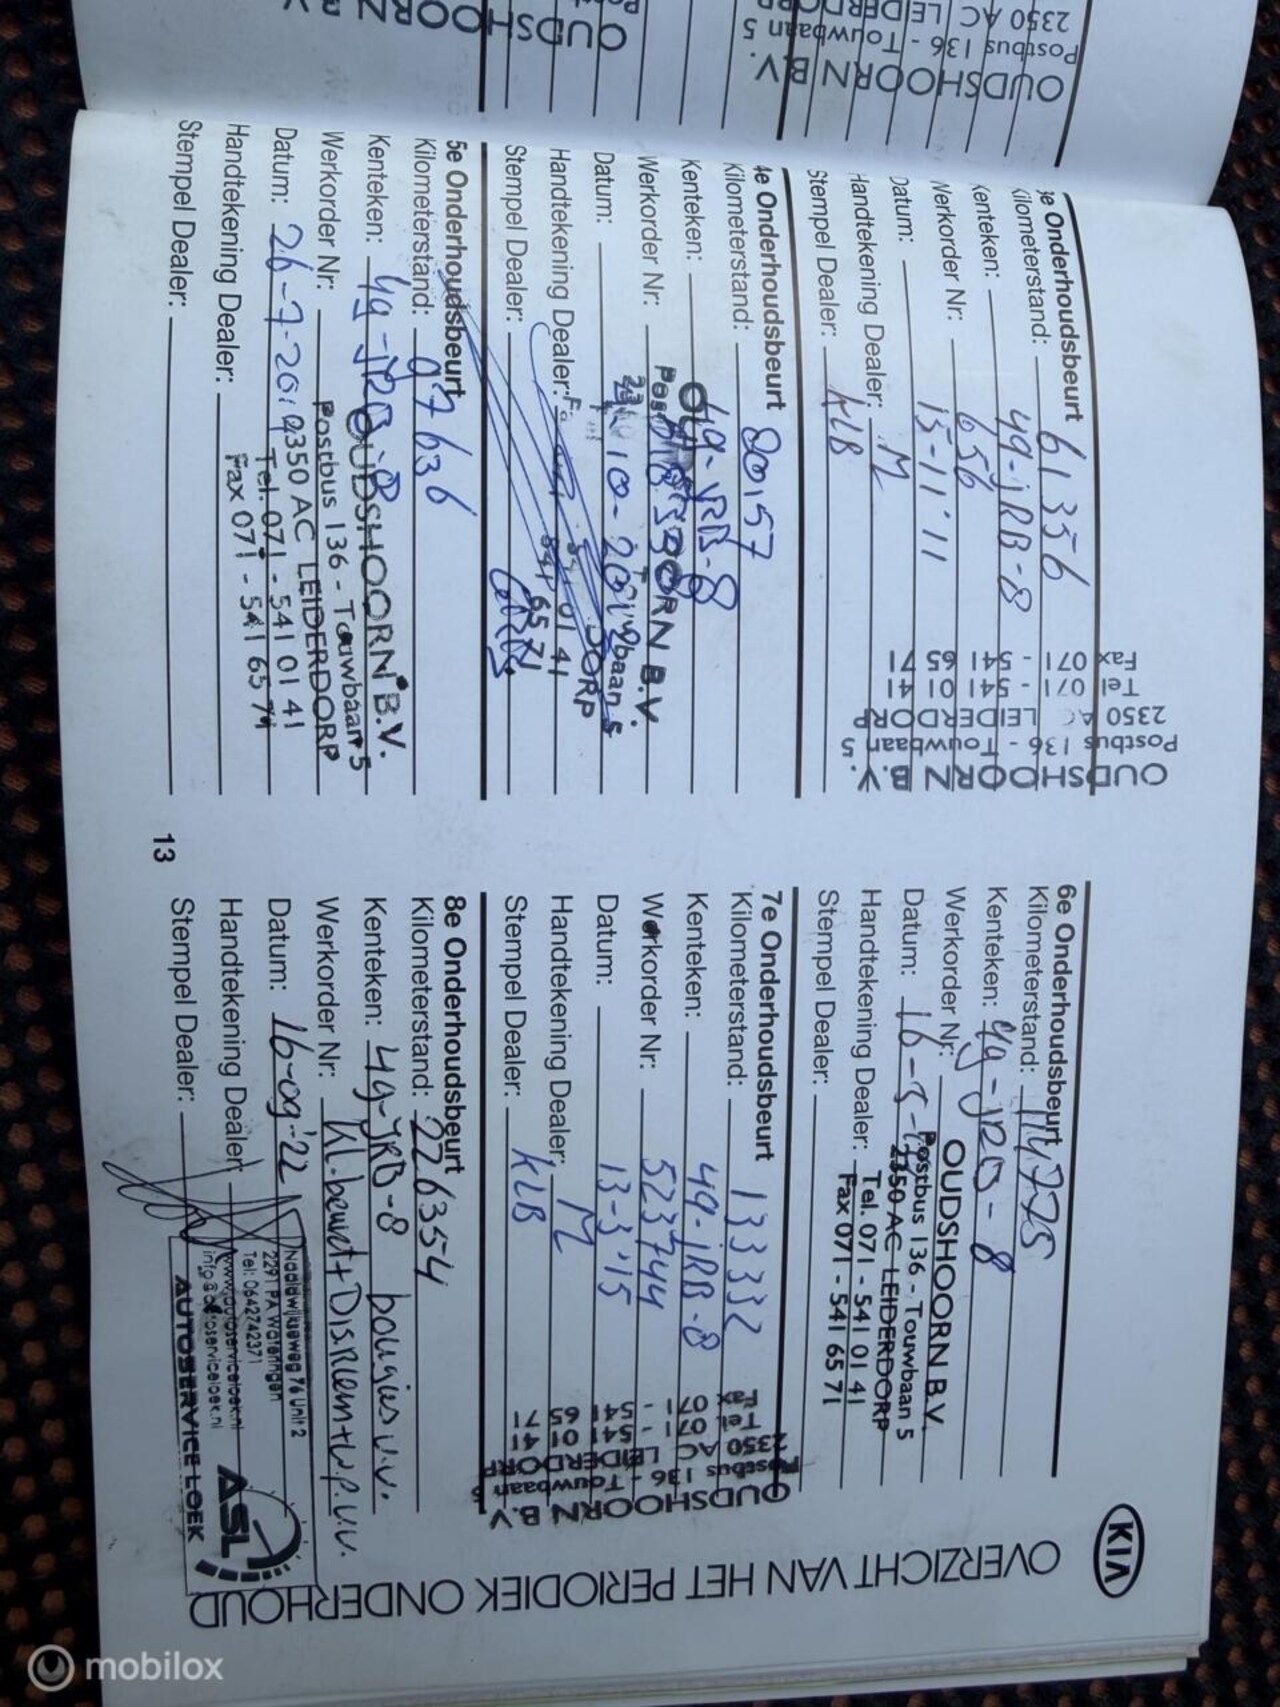 OUDSHOORN B.V.
Postbus 136 - Touwbaan 5
2350 AC
OUDSHOORN
KIA
OVERZICHT VAN HET PERIODIEK ONDERHOUD
3e Onderhoudsbeurt
Kilometerstand: 61356
Kenteken: 49-JRB-8
Werkorder Nr: 656
Datum: 15-11'11
Handtekening Dealer: M
Stempel Dealer: KLB
OUDSHOORN B.V.
Postbus 136 - Touwbaan 5
2350 AC LEIDERDORP
Tel 071 - 541 01 41
Fax 071 - 541 65 71
4e Onderhoudsbeurt
Kilometerstand: 80157
Kenteken: 49-JRB-8
Werkorder Nr:
Datum: 10-2012
Handtekening Dealer:
Stempel Dealer:
5e Onderhoudsbeurt
Kilometerstand: 97636
Kenteken: 49-JRB-8
Werkorder Nr:
Datum: 26-7-201
Handtekening Dealer:
Stempel Dealer:
OUDSHOORN B.V.
Postbus 136 - Touwbaan 5
2350 AC LEIDERDORP
Tel. 071 - 541 01 41
Fax 071 - 541 65 71
13
6e Onderhoudsbeurt
Kilometerstand: 114775
Kenteken: 49-JRB-8
Werkorder Nr:
Datum: 16-5-
Handtekening Dealer:
Stempel Dealer:
OUDSHOORN B.V.
Postbus 136 - Touwbaan 5
2350 AC LEIDERDORP
Tel. 071 - 541 01 41
Fax 071 - 541 65 71
7e Onderhoudsbeurt
Kilometerstand: 133332
Kenteken: 49-JRB-8
Werkorder Nr: 523744
Datum: 13-3'15
Handtekening Dealer: M
Stempel Dealer: KLB
OUDSHOORN B.V
Postbus 136 - Touwbaan 5
2350 AC LEIDERDORP
Tel 071 - 541 01 41
Fax 071 - 541 65 71
8e Onderhoudsbeurt
Kilometerstand: 226354
Kenteken: 49-JRB-8 bougies v.v.
Werkorder Nr: Kl.beurt + Dis.Riem + W.P. v.v.
Datum: 16-09-'22
Handtekening Dealer:
Stempel Dealer:
Naaldwijkseweg 76 Unit 2
2291 PA Wateringen
Tel: 0642742371
www.autoserviceloek.nl
info@autoserviceloek.nl
AUTOSERVICE LOEK
ASL
mobilox